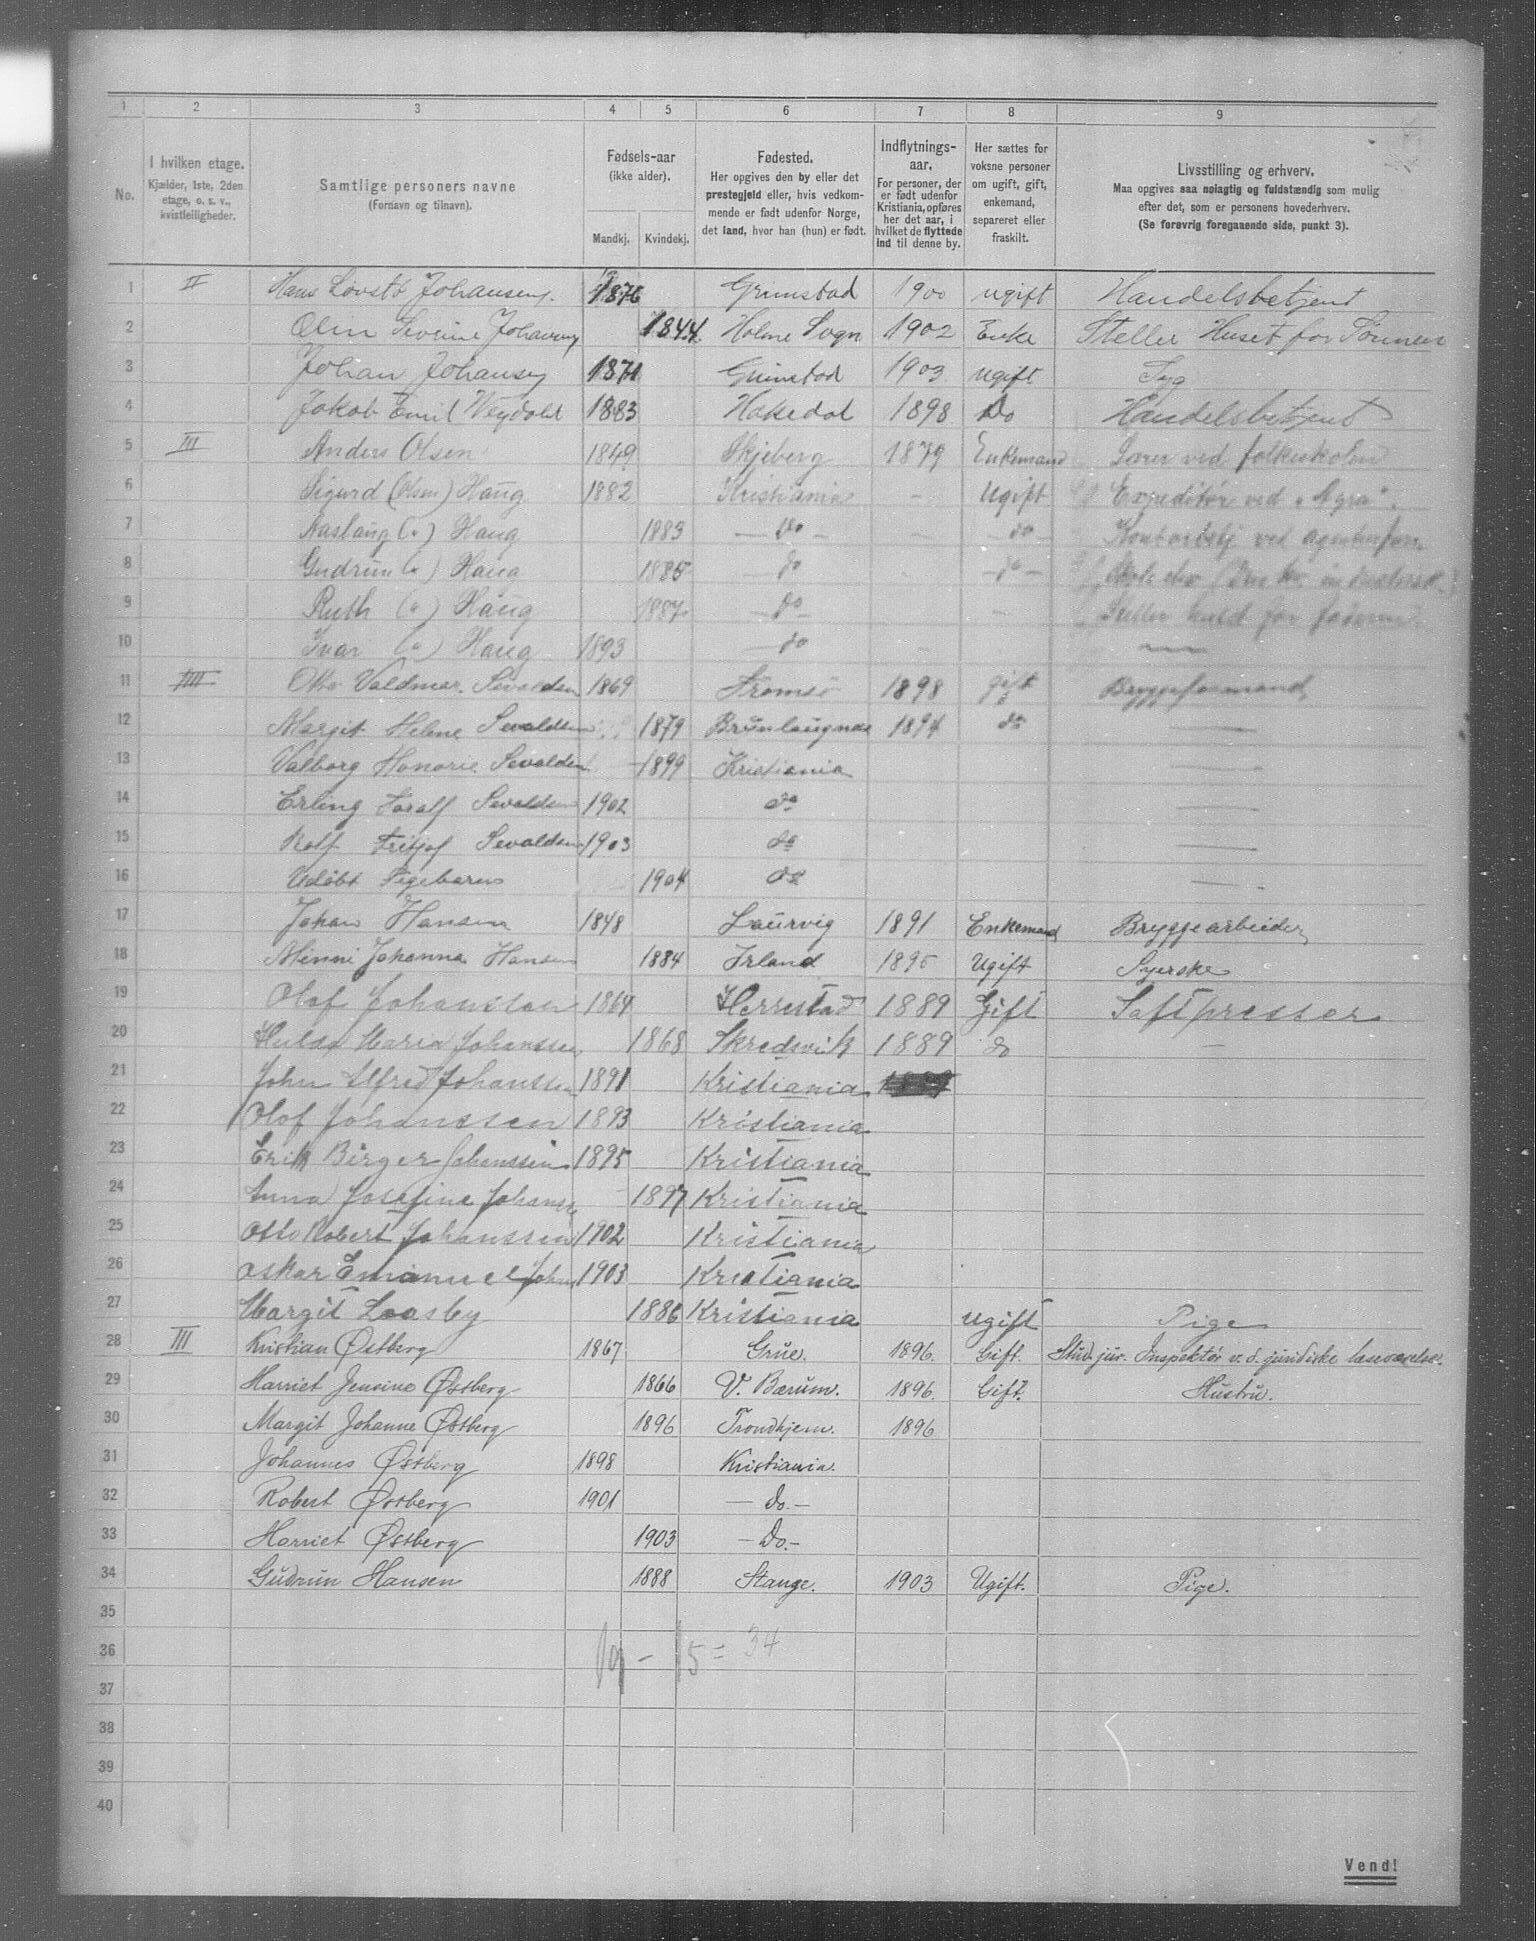 1 2 3 4 5 6 7 8 9
No.
I hvilken etage.
Kjælder, 1ste, 2den
etage, o. s. v.,
kvistleiligheder.
Samtlige personers navne
(Fornavn og tilnavn).
Fødsels-aar
(ikke alder).
Mandkj. Kvindekj.
Fødested.
Her opgives den by eller det
prestegjeld eller, hvis vedkom-
mende er født udenfor Norge,
det land, hvor han (hun) er født.
Indflytnings-
aar.
For personer, der
er født udenfor
Kristiania, opføres
her det aar, i
hvilket de flyttede
ind til denne by.
Her sættes for
voksne personer
om ugift, gift,
enkemand,
separeret eller
fraskilt.
Livsstilling og erhverv.
Maa opgives saa nøiagtig og fuldstændig som mulig
efter det, som er personens hovederhverv.
(Se forøvrig foregaaende side, punkt 3).
1 II Hans Lovstø Johansen 1876 Grimstad 1900 ugift Handelsbetjent
2 Olin Severine Johansen 1844 Holme Sogn 1902 Enke Steller Huset for Sønnen
3 Johan Johansen 1871 Grimstad 1903 ugift Syg
4 Jakob Emil Weydold 1883 Hakedal 1898 Do Handelsbetjent
5 III Anders Olsen 1849 Skjeberg 1879 Enkemand Lærer ved folkeskolen
6 Sigurd (Olsen) Haug 1882 Kristiania - Ugift Expeditør ved "Agra".
7 Aaslaug (") Haug 1883 - Do - - do - Kontorbetj. ved
8 Gudrun (") Haug 1885 - do - do -
9 Ruth (") Haug 1887 - do - Steller huset for faderen
10 Ivar (") Haug 1893 - do
11 IIII Otto Valdmar Sevaldsen 1869 Tromsø 1898 gift Bryggeformand
12 Margit Helene Sevaldsen 1879 Brunlaugnæs 1894 do
13 Valborg Honorie Sevaldsen 1899 Kristiania
14 Erling Toralf Sevaldsen 1902 do
15 Rolf Fritjof Sevaldsen 1903 do
16 Udøbt Pigebarn 1904 do
17 Johan Hansen 1848 Laurvig 1891 Enkemand Bryggearbeider
18 Minni Johanna Hansen 1884 Irland 1895 Ugift Syerske
19 Olaf Johanssen 1864 Herrestad 1889 Gift Saftpresser
20 Hulda Maria Johanssen 1868 Skredsvik 1889 do -
21 John Alfred Johanssen 1891 Kristiania 1889
22 Olof Johanssen 1893 Kristiania
23 Erik Birger Johanssen 1895 Kristiania
24 Anna Josefine Johanss 1897 Kristiania
25 Otto Robert Johanssen 1902 Kristiania
26 Oskar Emanuel Johan 1903 Kristiania
27 Margit Laasby 1886 Kristiania ugift Pige
28 III Kristian Østberg 1867 Grue. 1896. Gift. Stud. jur. Inspektør v. d. juridiske læseværelse.
29 Harriet Jensine Østberg 1866 V. Bærum. 1896. Gift. Hustru.
30 Margit Johanne Østberg 1896 Trondhjem. 1896
31 Johannes Østberg 1898 Kristiania.
32 Robert Østberg 1901 - Do. -
33 Harriet Østberg 1903 - Do. -
34 Gudrun Hansen 1888 Stange. 1903 Ugift. Pige.
35
36 19 - 15 = 34
37
38
39
40
Vend!